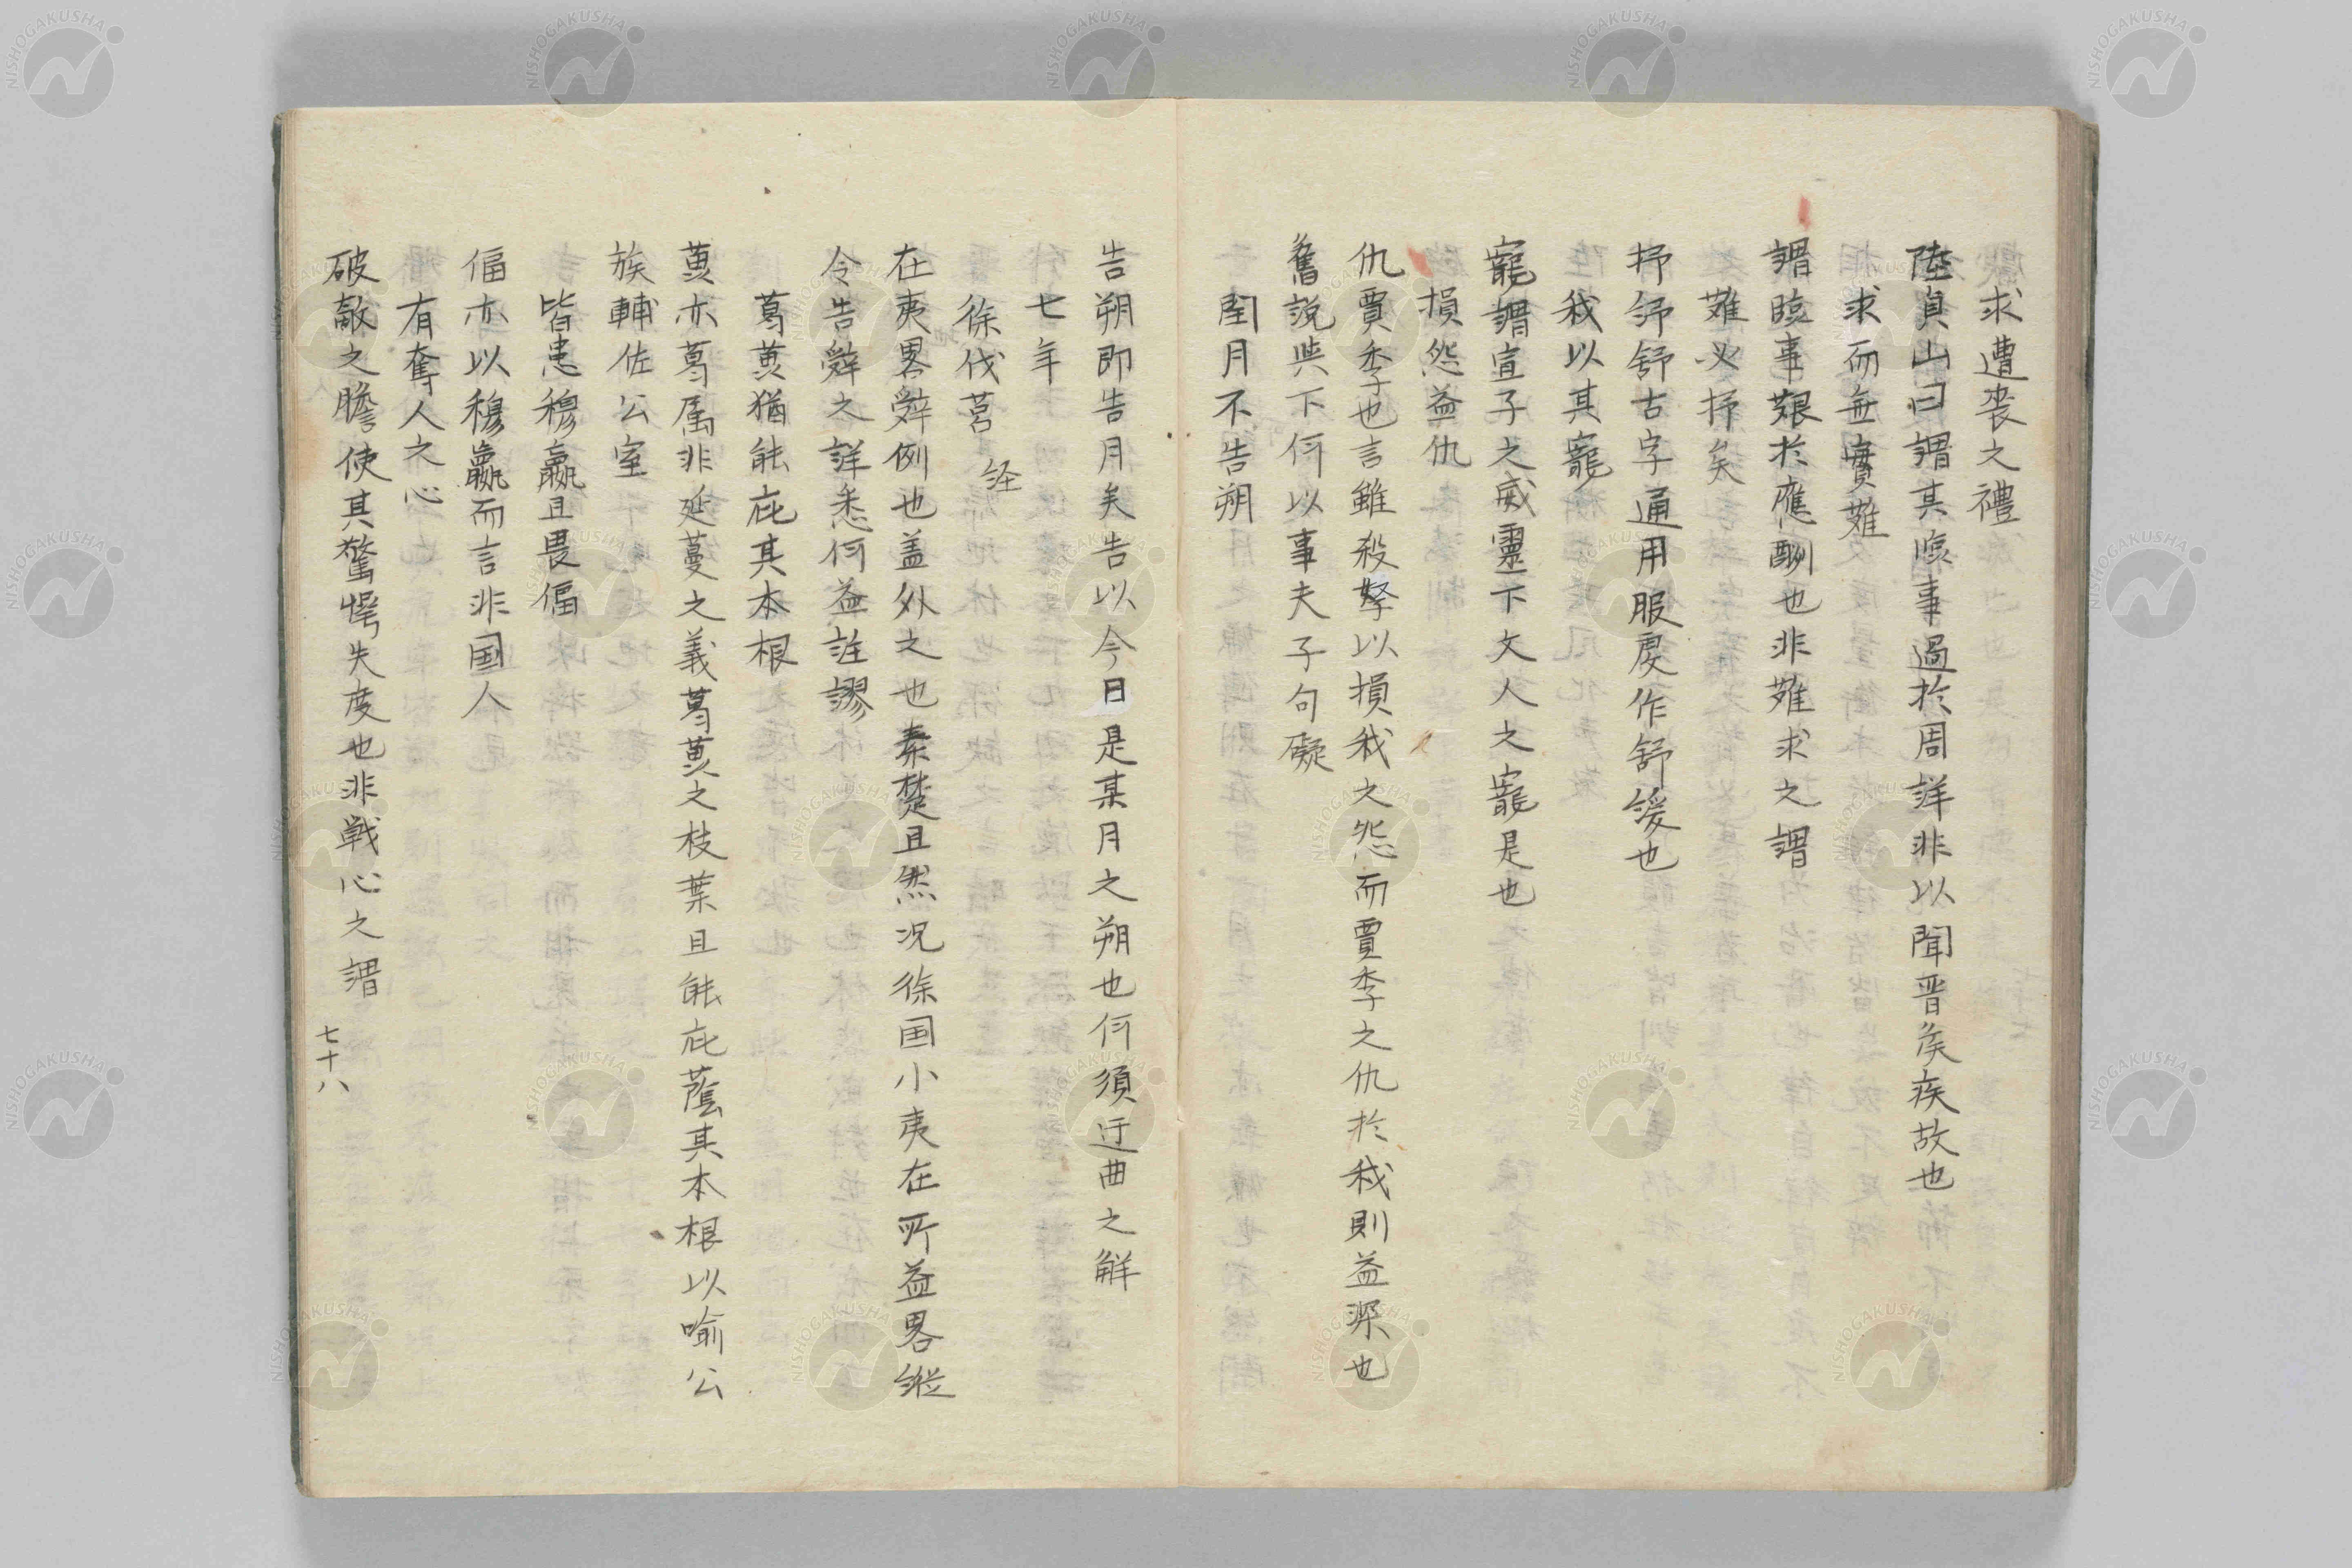 求遭喪之禮
陸貞山曰謂其臨事過於周詳非以聞晋矦疾故也
求而無實難
謂臨事艱於應酬也非難求之謂
難必抒矣
抒紓舒古字通用服虔作舒緩也
我以其寵
寵謂宣子之威靈下文人之寵是也
損怨益仇
仇賈季也言雖殺孥以損我之怨而賈季之仇於我則益深也
舊說與下何以事夫子句礙
閏月不告朔
告朔即告月矣告以今日是某月之朔也何須迂曲之解
七年
徐伐莒 経
在夷畧辤例也盖外之也秦楚且然况徐国小夷在所益畧縦
令告辤之詳悉何益註謬
葛藟猶能庇其本根
藟亦葛属非延蔓之義葛藟之枝葉且能庇蔭其本根以喻公
族輔佐公室
皆患穆嬴且畏偪
偪亦以穆嬴而言非国人
有奪人之心
破敵之膽使其驚愕失度也非戦心之謂
七十八
NISHOGAKUSHA